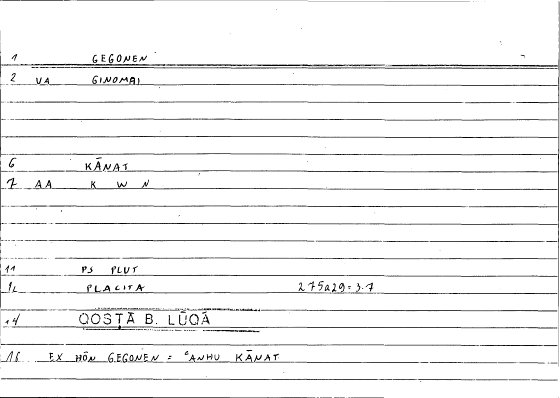 1 GEGONEN
2 VA GINOMAI
6 KĀNAT
7 AA K W N
11 PS PLUT
12 PLACITA 275a29 = 3.7
14 QOSṬĀ B. LŪQĀ
15 EX HŌN GEGONEN = ʿANHU KĀNAT